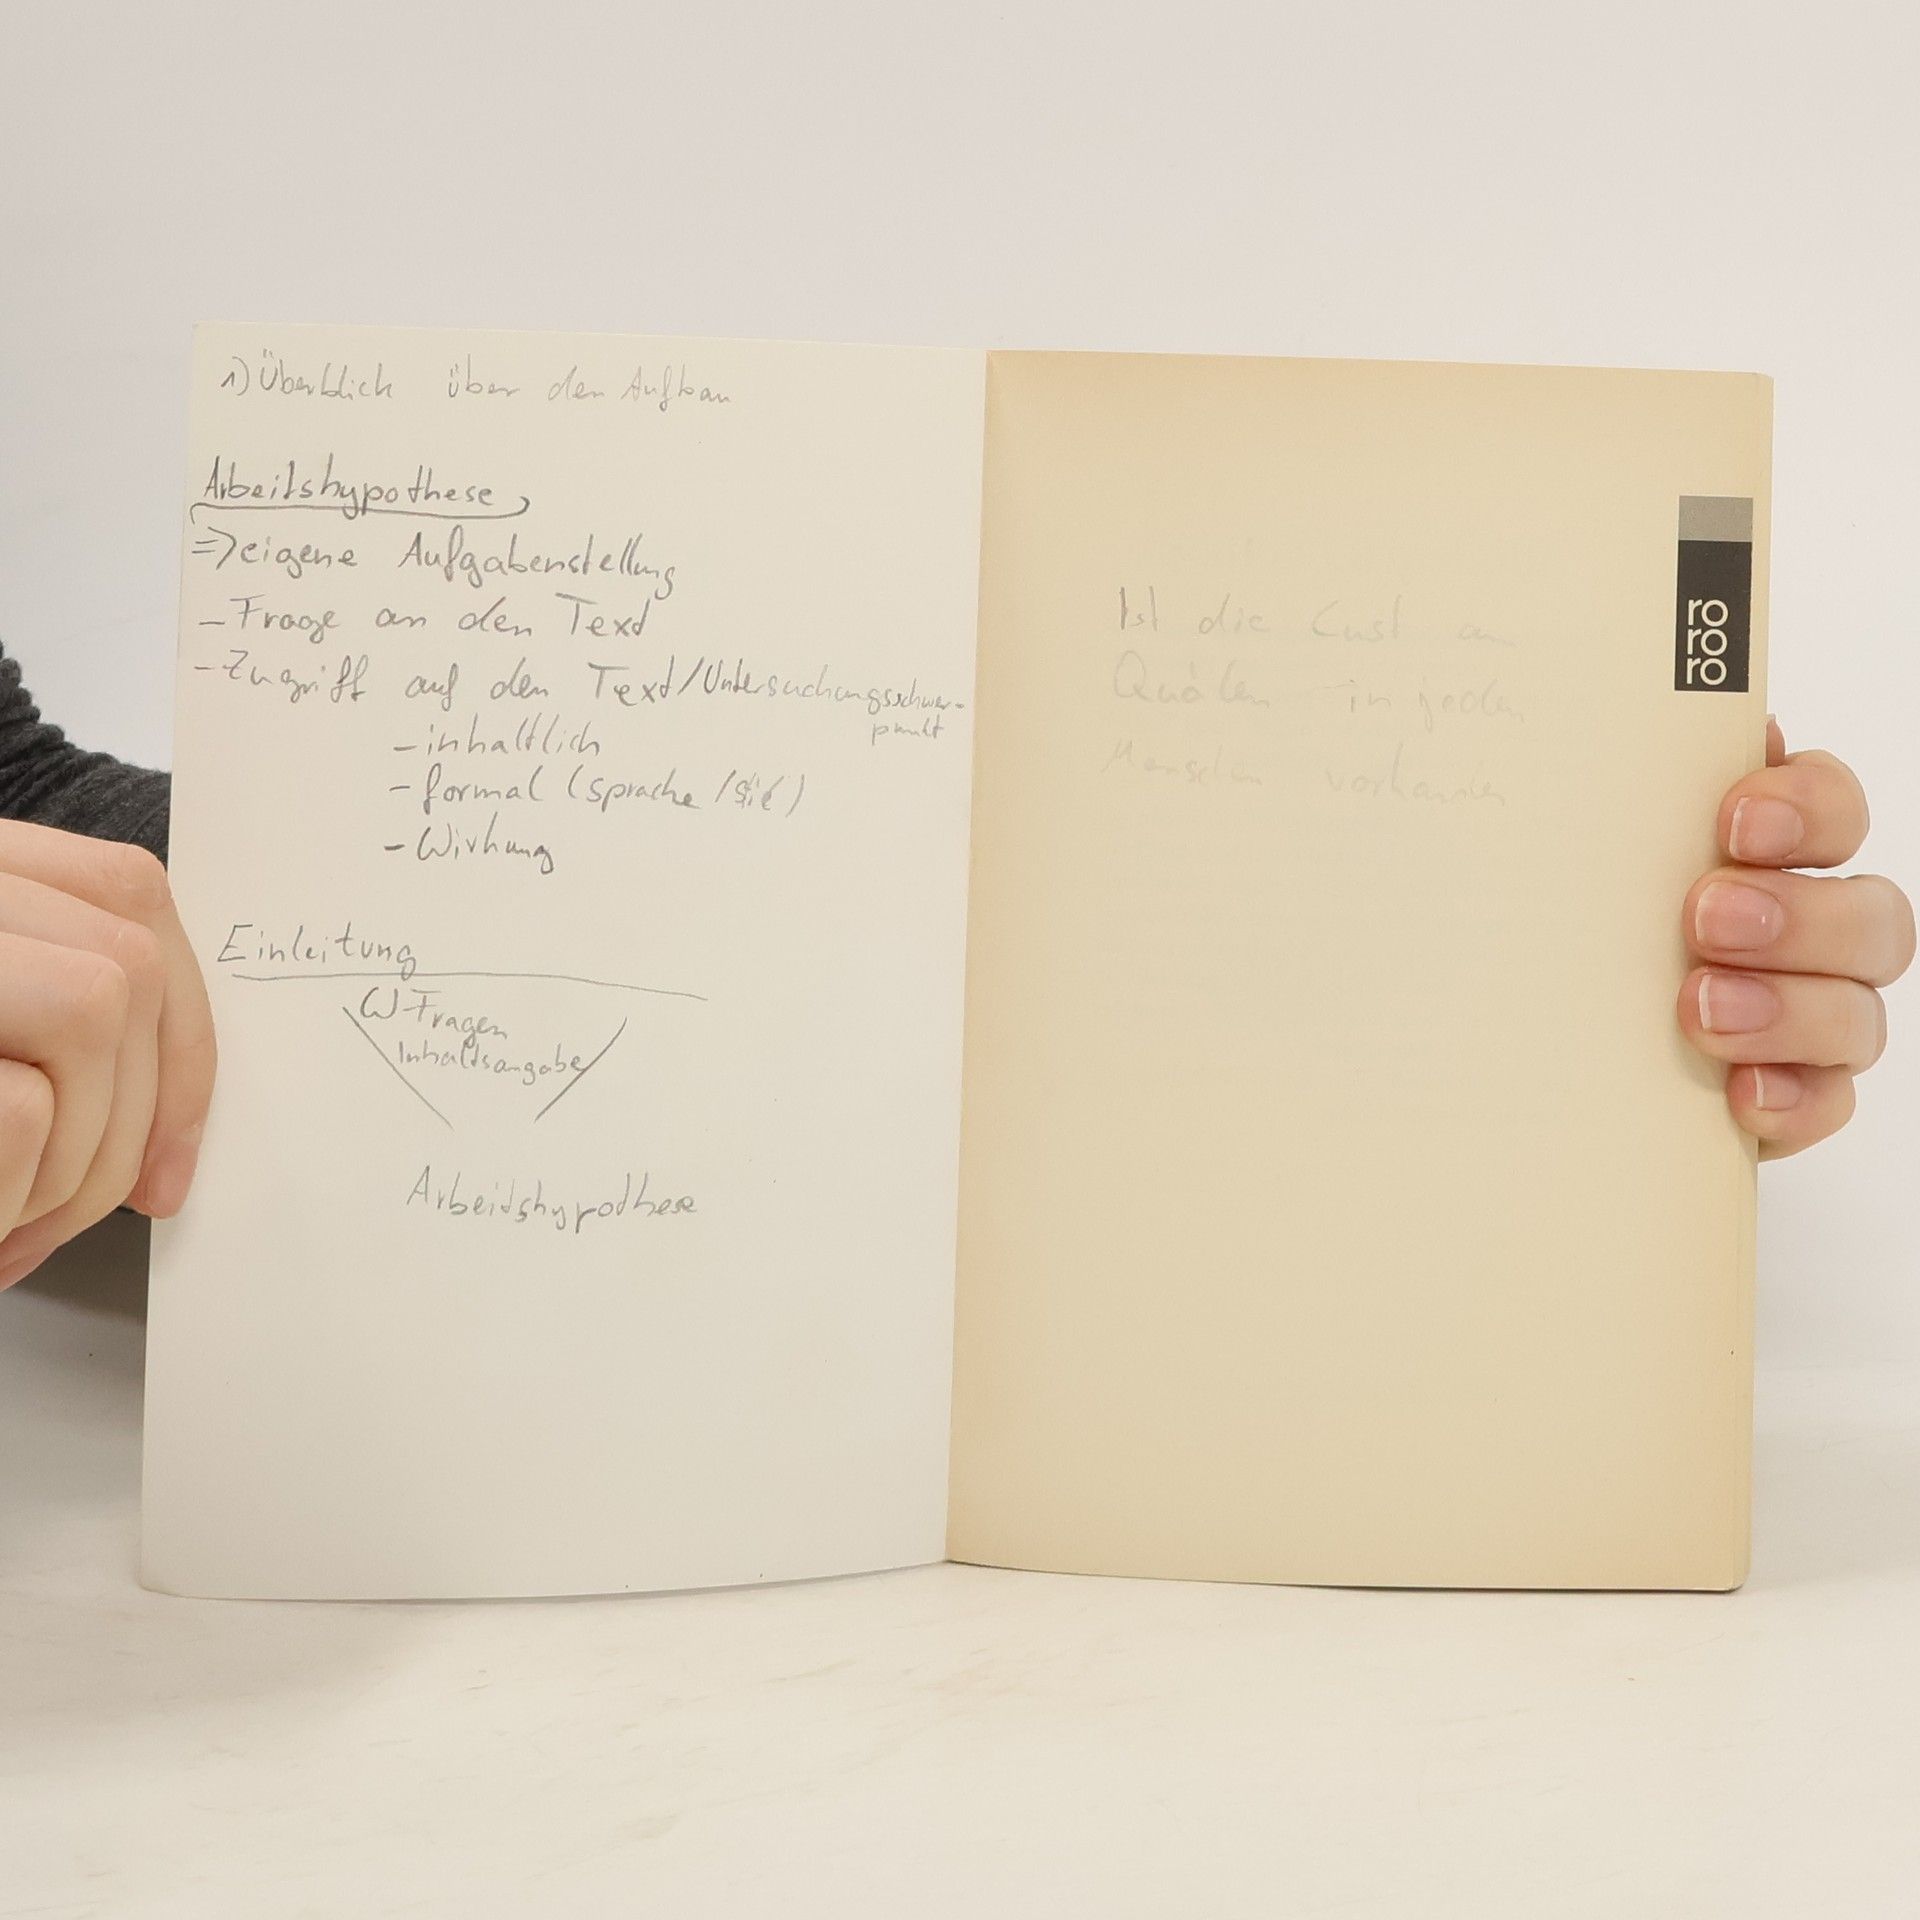 1) Überblick über den Aufbau
Arbeitshypothese
=> eigene Aufgabenstellung
- Frage an den Text
- Zugriff auf den Text/Untersuchungsschwer-
punkt
- inhaltlich
- formal (sprache /
- Wirkung
Einleitung
W-Fragen
Inhaltsangabe
Arbeitshypothese
Ist die Lust am
Quälen in jeden
Menschen vorhanden
ro
ro
ro